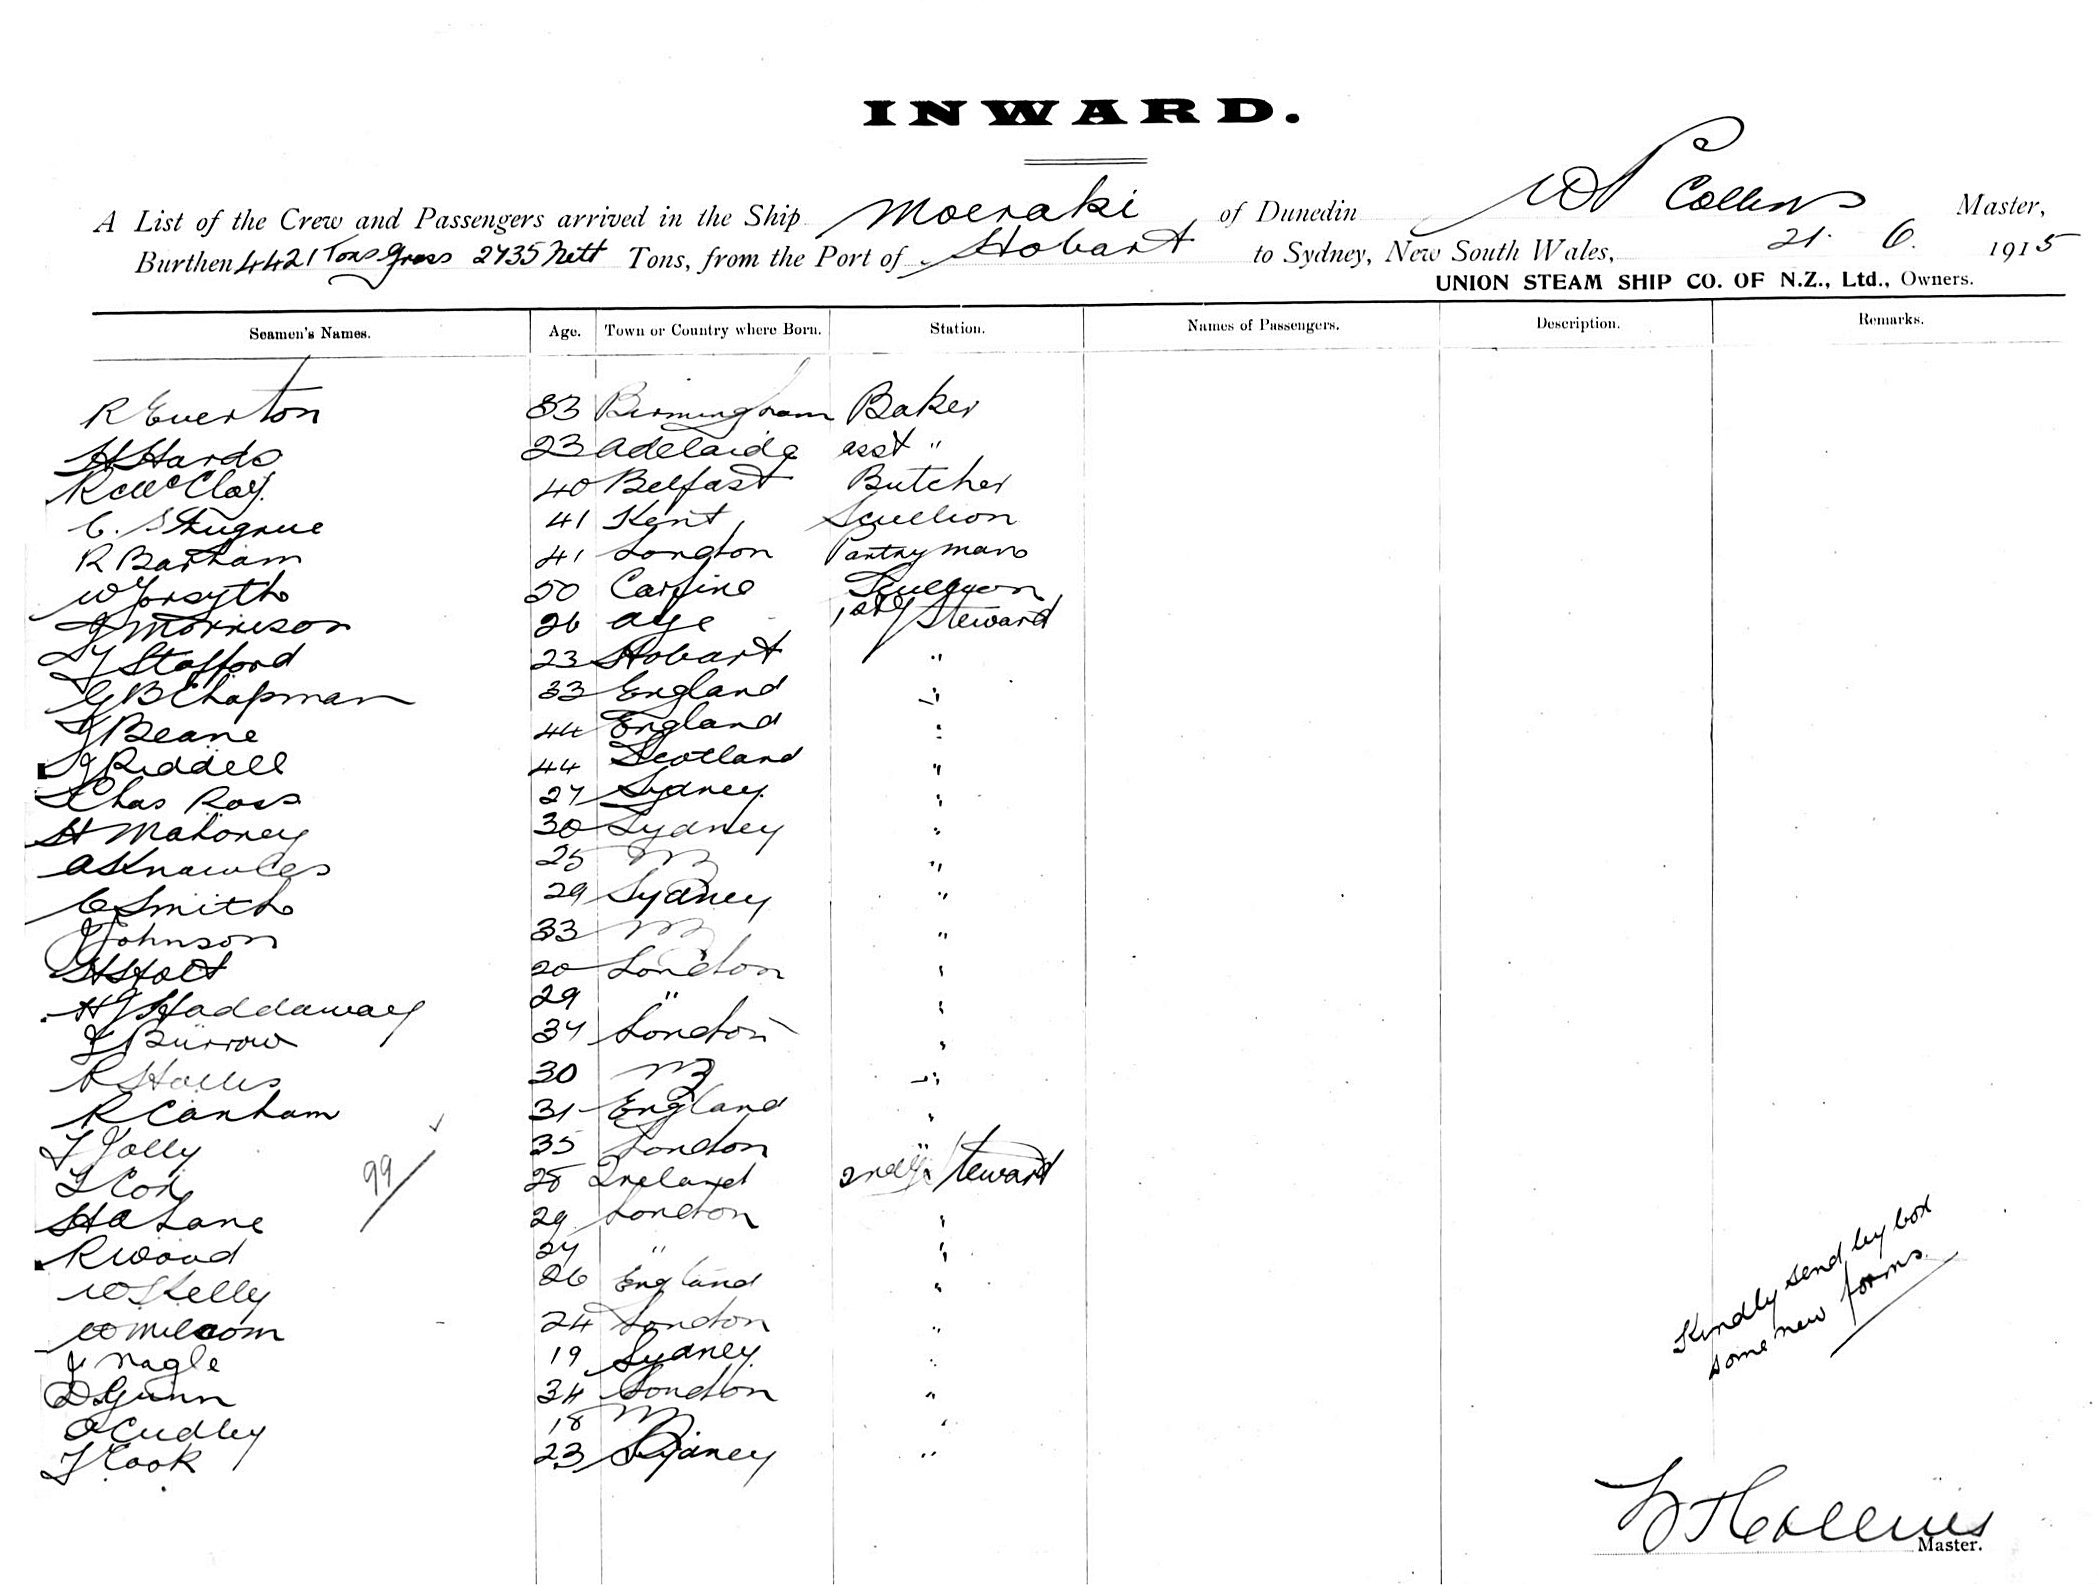 INWARD.
A List of the Crew and Passengers arrived in the Ship Moeraki of Dunedin Collins Master,
Burthen 4421 Tons Gross 2735 Nett Tons, from the Port of Hobart to Sydney, New South Wales, 21. 6. 1915
UNION STEAM SHIP CO. OF N.Z., Ltd., Owners.
Seamen's Names. Age. Town or Country where Born. Station. Names of Passengers. Description. Remarks.
R Everton 33 Birmingham Baker
H Hards 23 Adelaide asst "
R McClay 40 Belfast Butcher
C. 41 Kent Scullion
R Barham 41 London Pantryman
W Forsyth 50 Carfine Scullion
J Morrison 26 1st Steward
Stafford 23 Hobart "
G B Chapman 33 England "
J Beane 44 England "
J Riddell 44 Scotland "
Chas Ross 27 Sydney "
H Mahoney 30 Sydney "
A Knowles 25 "
C Smith 29 Sydney "
J Johnson 33 "
H Holt 20 London "
H J Haddaway 29 " "
J Burrow 37 London "
R Hollis 30 NZ "
R Canham 31 England "
T Jolly 35 London "
Cox 28 Ireland 2nd Steward
H A Lane 29 London "
99
R Wood 27 " "
W Kelly 26 England "
W Milcom 24 London "
J Nagle 19 Sydney "
D Gunn 34 London "
Cudley 18 "
T Cook 23 Sydney "
Kindly send by box
some new forms.
Collins
Master.